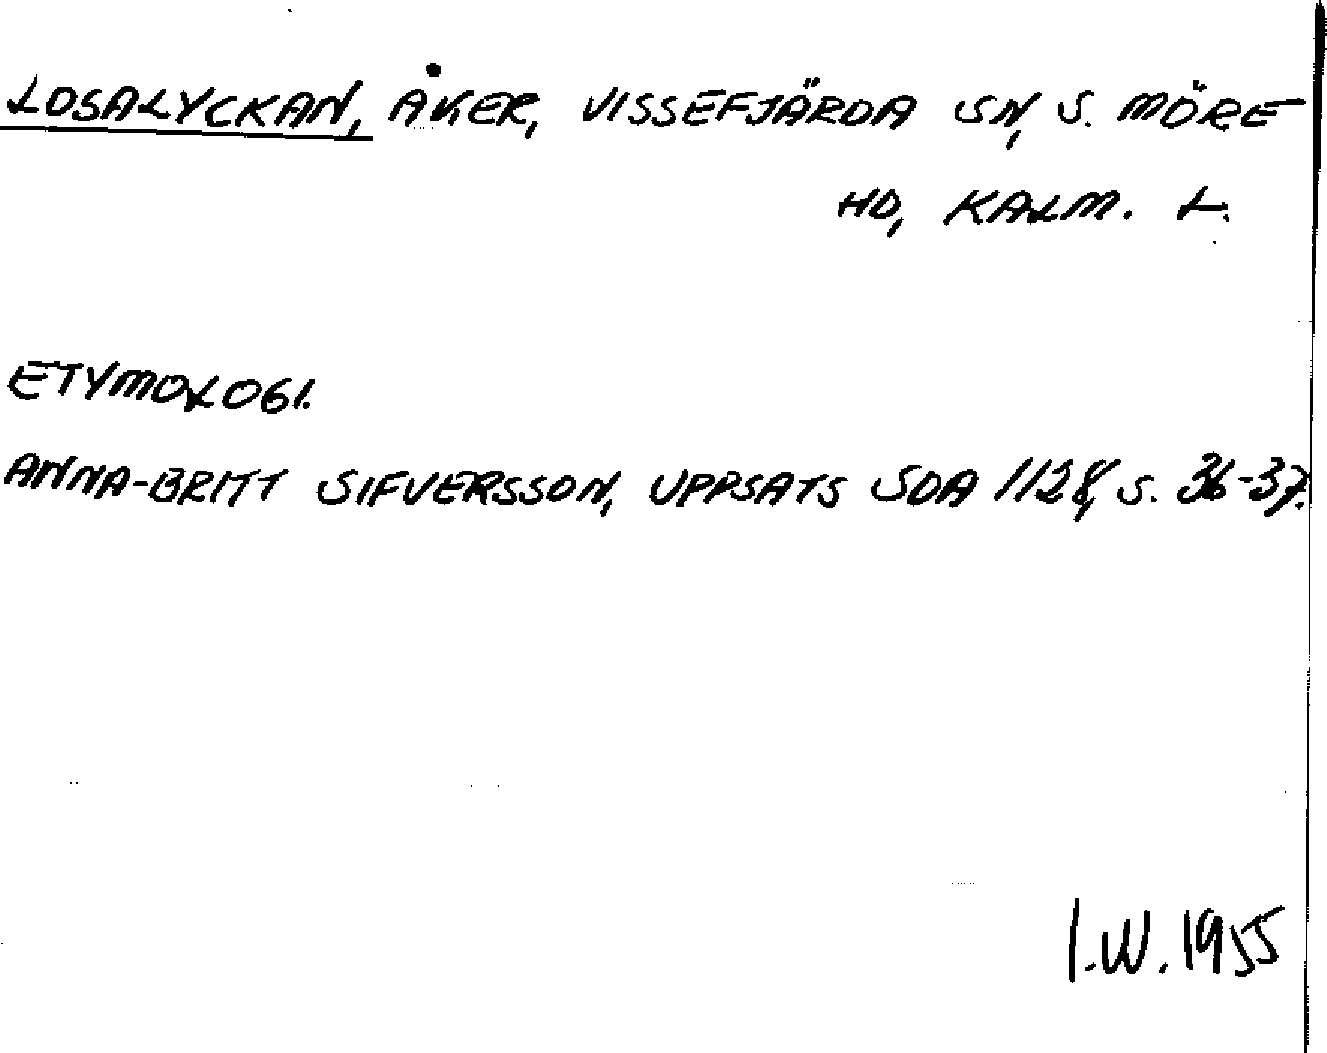 LOSALYCKAN, ÅKER, VISSEFJÄRDA SN, S. MÖRE
HD, KALM. L.
ETYMOLOGI.
ANNA-BRITT SIFVERSSON, UPPSATS SDA 1128, S. 36-37.
I.W. 1955